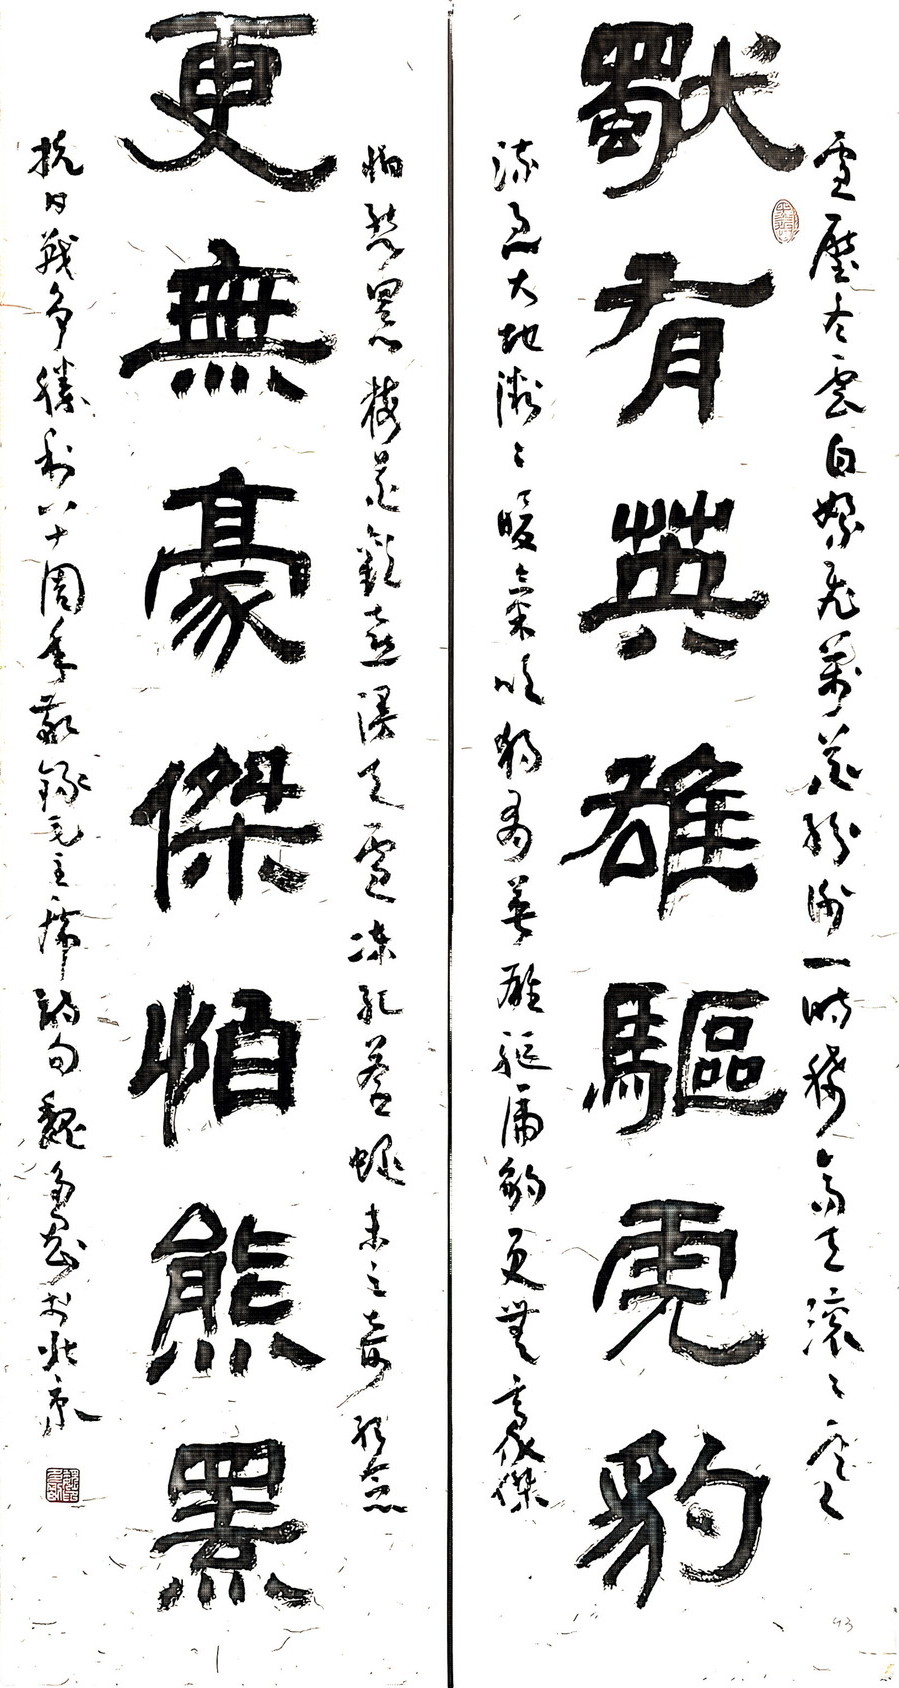 雪壓冬雲白絮飛萬花紛謝一時稀高天滾滾寒
獨有英雄驅虎豹
流急大地微微暖氣吹獨有英雄驅虎豹更無豪傑
怕熊羆梅花歡喜漫天雪凍死蒼蠅未足奇紀念
更無豪傑怕熊羆
抗日戰爭勝利八十周年敬錄毛主席詩句魏於北京